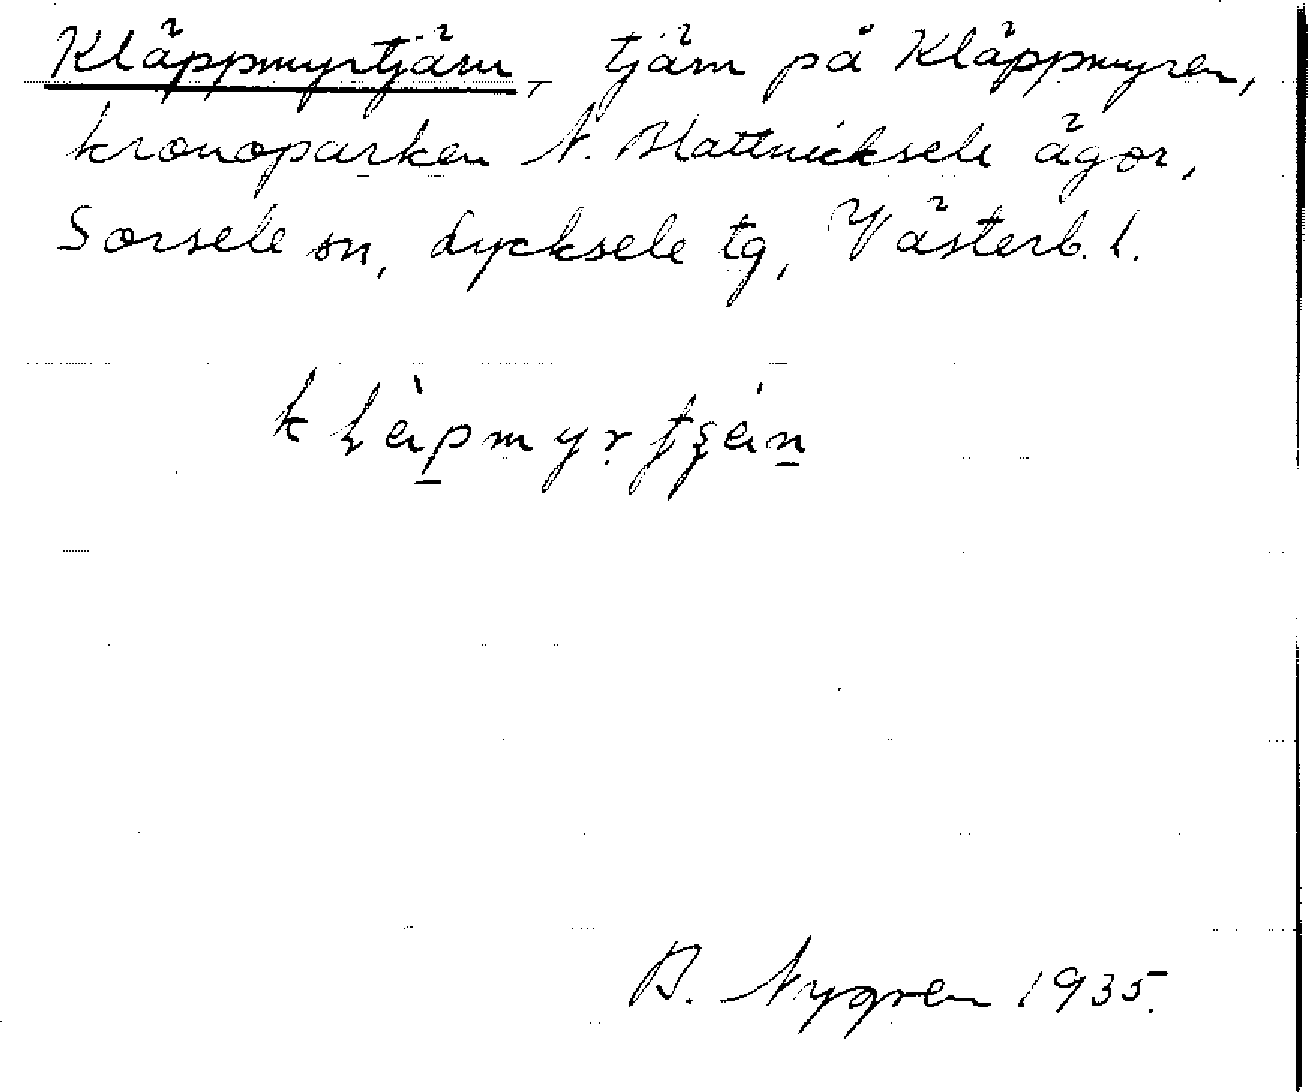 Kläppmyrtjärn, tjärn på Kläppmyren,
kronoparken N. Blattnicksele ägor,
Sorsele sn, Lycksele tg, Västerb. l.
B. Nygren 1935.